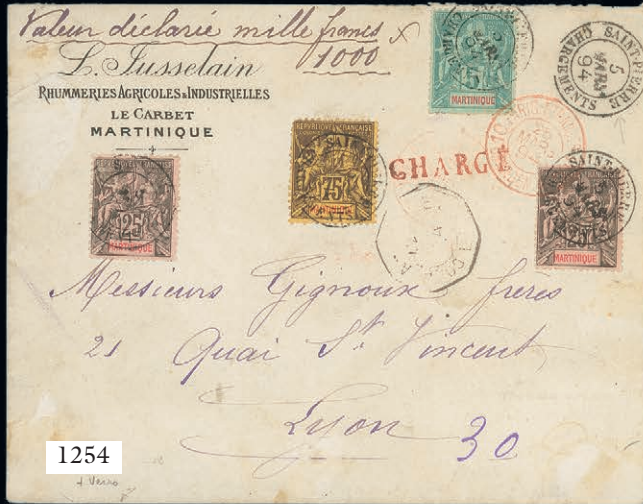 Valeur déclarée mille francs
1000
L. Jusselain
RHUMMERIES AGRICOLES & INDUSTRIELLES
LE CARBET
MARTINIQUE
5
MARTINIQUE
SAINT-PIERRE
5
MARS
94
CHARGEMENTS
RÉPUBLIQUE FRANÇAISE
75
MARTINIQUE
CHARGÉ
25
MARTINIQUE
SAINT-PIERRE
25
MARTINIQUE
Messieurs Gignoux frères
21 Quai St Vincent
Lyon 30
1254
+ Verso